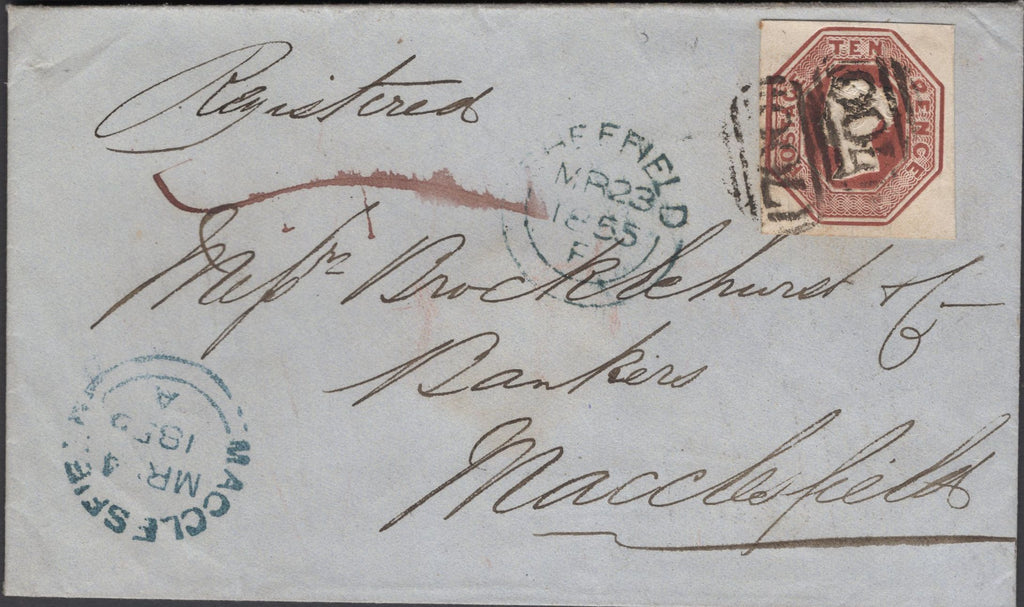 Registered
TEN PENCE
POSTAGE
700
700
SHEFFIELD
MR 23
1855
F
Messrs Brocklehurst & Co
Bankers
Macclesfield
MACCLESFIELD
MR 4
A